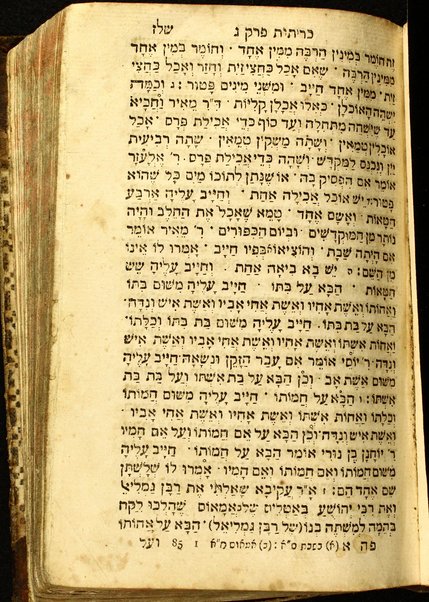 כריתית פרק ג שלז
זה חומר במינין הרבה ממין אחד ׃ וחומר במין אחד
ממינין הרבה ׃ שאם אכל כחצי זית וחזר ואכל כחצי
זית ׃ ממין אחד חייב ׃ ומשני מינים פטור ׃ ג וכמה
ישהה האוכלן ׃ כאלו אכלן קליות ׃ ד״ר מאיר וחכי״א
עד שישהה מתחלה ועד סוף כדי אכילת פרס ׃ אכל
אוכלין טמאין ׃ ושתה משקין טמאין ׃ שתה רביעית
יין ונכנס למקדש ׃ ושהה כדי אכילת פרס ׃ ר׳ אלעזר
אומר אם הפסיק בה ׃ או שנתן לתוכו מים כל שהוא
פטור ׃ ד יש אוכל אכילה אחת ׃ וחייב עליה ארבע
חטאות ׃ ואשם אחד ׃ טמא שאכל את החלב והיה
נותר מן המוקדשים ׃ וביום הכפורים ׃ ר׳ מאיר אומר
אם היתה שבת ׃ והוציאו בפיו חייב ׃ אמרו לו אינו
מן השם ׃ ה יש בא ביאה אחת ׃ וחייב עליה שש
חטאות ׃ הבא על בתו ׃ חייב עליה משום בתו
ואחותו ואשת אחיו ואשת אחי אביו ואשת איש ונדה ׃
הבא על בת בתו ׃ חייב עליה משום בת בתו וכלתו
ואחות אשתו ואשת אחיו ואשת אחי אביו ואשת איש
ונדה ׃ ר׳ יוסי אומר אם עבר הזקן ונשאה ׃ חייב עליה
משום אשת אב ׃ וכן הבא על בת אשתו ועל בת בת
אשתו ׃ ו הבא על חמותו ׃ חייב עליה משום חמותו
וכלתו ואחות אשתו ׃ ואשת אחיו ואשת אחי אביו ׃
ואשת איש ונדה ׃ וכן הבא על אם חמותו ועל אם חמיו
ר׳ יוחנן בן נורי אומר הבא על חמותו ׃ חייב עליה
משום חמותו ואם חמותו ואם חמיו ׃ אמרו לו שלשתן
שם אחד הם ׃ ז א״ר עקיבא שאלתי את רבן גמליאל
ואת רבי יהושע באטליס של אמאוס שהלכו ליקח
בהמה למשתה בנו (של רבן גמליאל) ׃ הבא על אחותו
פה א (א) כשבת ס״א ׃ (ב) אמאוס ס״א 1 85 ועל